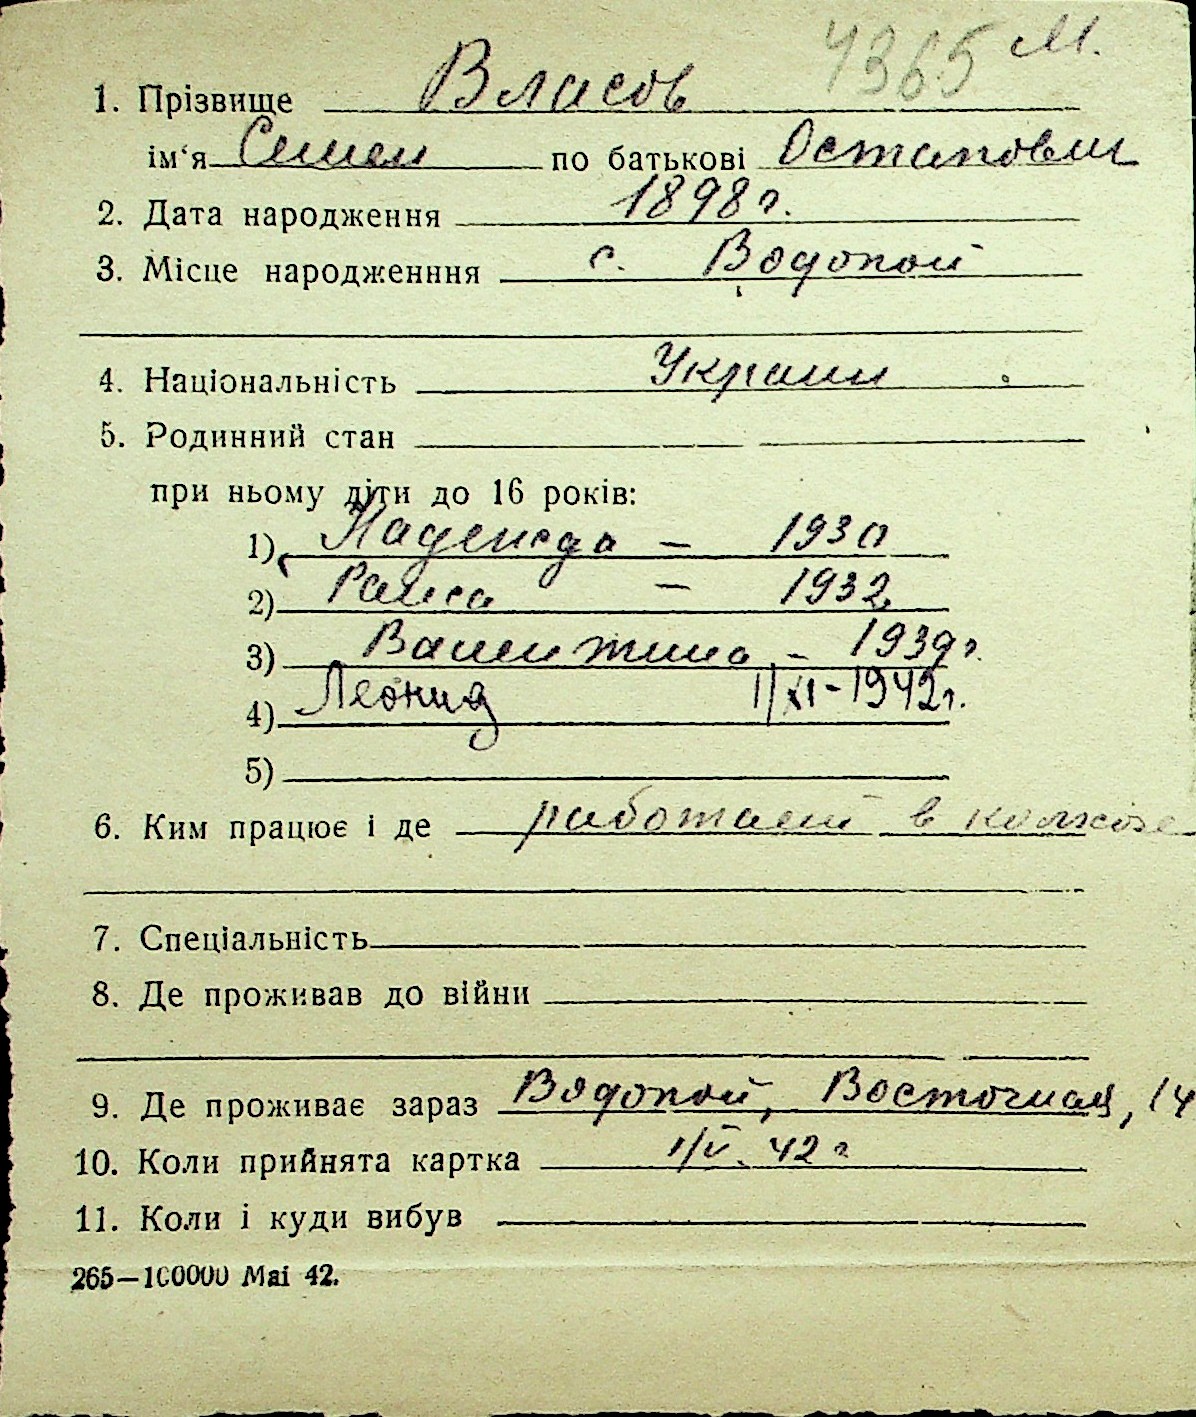 4365 М.
1. Прізвище Власов
ім‘я Семен по батькові Остапович
2. Дата народження 1898 г.
3. Місце народженння с. Водопой
4. Національність Украин
5. Родинний стан
при ньому діти до 16 років:
1) Надежда – 1930
2) Раиса – 1932
3) Валентина – 1939 г.
4) Леонид 1/XI-1942 г.
5)
6. Ким працює і де работает в колхозе
7. Спеціальність
8. Де проживав до війни
9. Де проживає зараз Водопой, Восточная, 14
10. Коли прийнята картка 1/V. 42 г
11. Коли і куди вибув
265—100000 Mai 42.